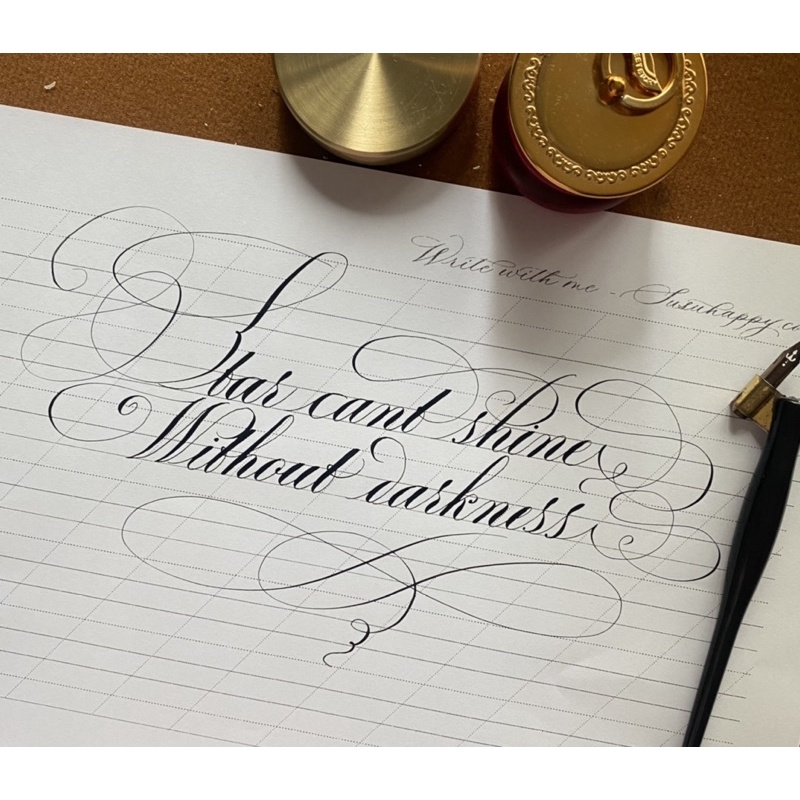 Write with me - Susuhappy
Star cant shine
Without darkness